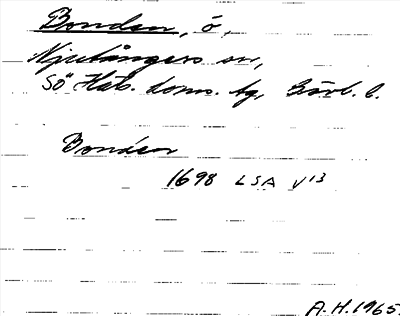 Bonden, ö,
Njutångers sn,
Sö Häls. doms. tg, Gävl. l.
Bondön
1698 LSA V13
A.H. 1965.